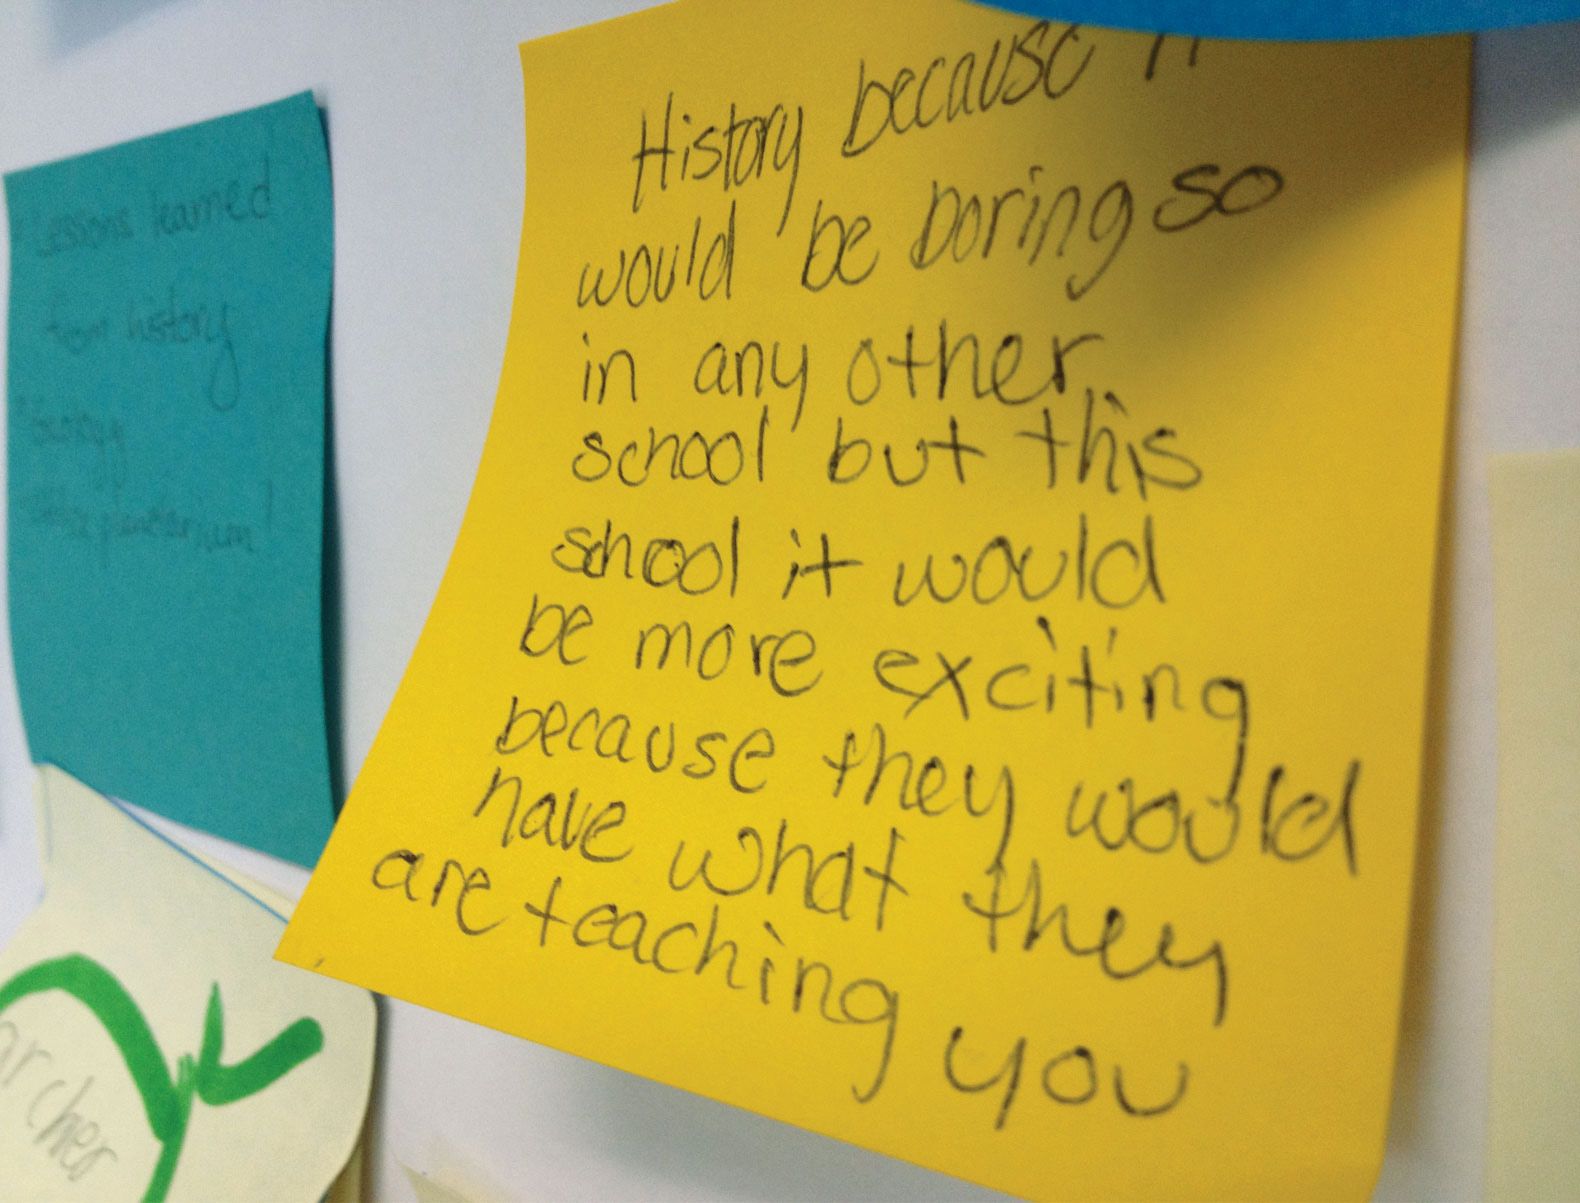 Lessons learned
from history
History because it
would be boring so
in any other
school but this
school it would
be more exciting
because they would
have what they
are teaching you